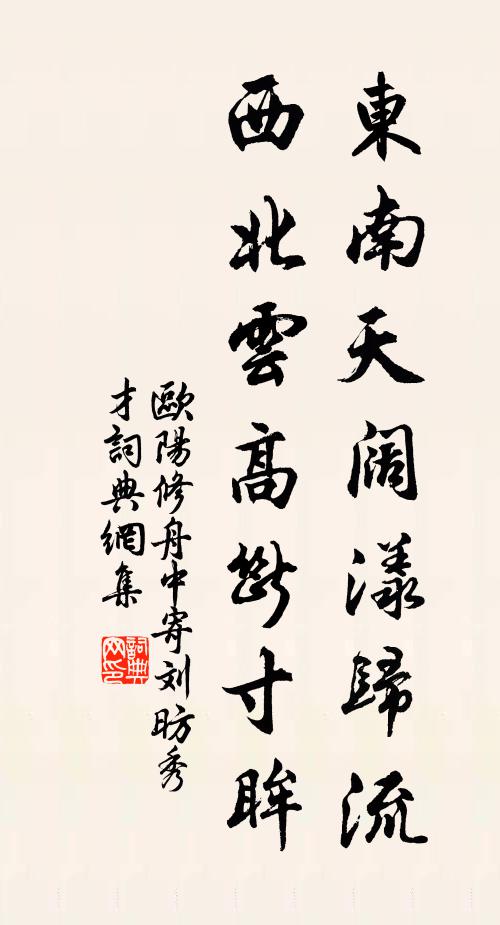 東南天阔漾歸流
西北雲高斷寸眸
歐陽修舟中寄刘昉秀
才詞典網集
詞典
网印